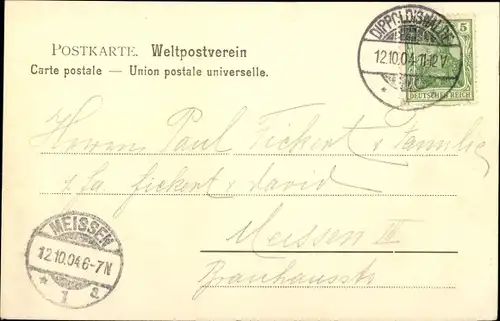 POSTKARTE. Weltpostverein
Carte postale — Union postale universelle.
DIPPOLDISWALDE
12.10.04.11-12V
5
DEUTSCHES REICH
Herrn Paul Fickert & Familie
Fa. Fickert & David
Meissen III
Brauhausstr
MEISSEN
12.10.04.6-7N
* 1 a.